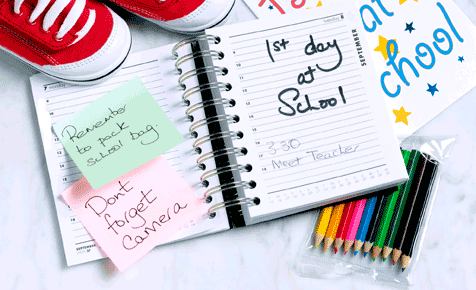 Remember
to pack
school bag
Dont
forget
Camera
SEPTEMBER
1st day
at
School
3.30
Meet Teacher
SEPTEMBER
at
school